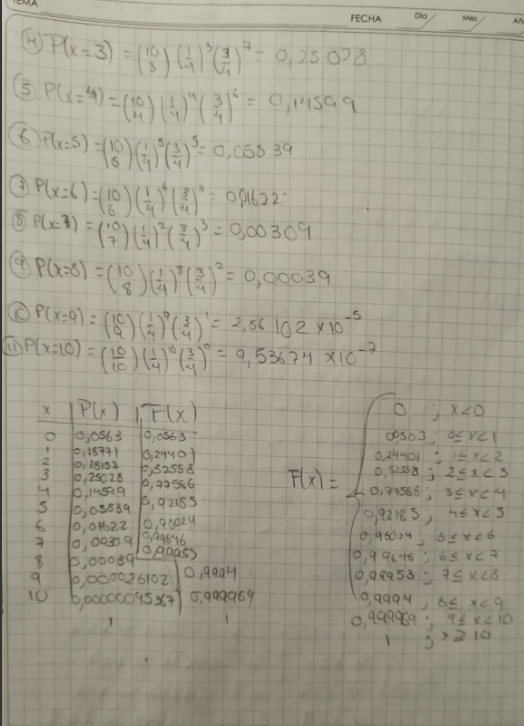 TEMA
FECHA Día Mes Añ
④ P(x=3) = (10 3) (1/4)³ (3/4)⁷ = 0,25028
⑤ P(x=4) = (10 4) (1/4)⁴ (3/4)⁶ = 0,14599
⑥ P(x=5) = (10 5) (1/4)⁵ (3/4)⁵ = 0,05839
⑦ P(x=6) = (10 6) (1/4)⁶ (3/4)⁴ = 0,01622
⑧ P(x=7) = (10 7) (1/4)⁷ (3/4)³ = 0,00309
⑨ P(x=8) = (10 8) (1/4)⁸ (3/4)² = 0,00039
⑩ P(x=9) = (10 9) (1/4)⁹ (3/4)¹ = 2,86102 x10⁻⁵
⑪ P(x=10) = (10 10) (1/4)¹⁰ (3/4)⁰ = 9,53674 x10⁻⁷
x P(x) F(x)
0 0,0563 0,0563
1 0,18771 0,24401
2 0,28157 0,52558
3 0,25028 0,77586
4 0,14599
5 0,05839 0,92185
6 0,01622 0,98024
7 0,00309 0,99646
0,99953
8 0,00039
9 0,000026102 0,9994
10 0,00000095367 0,999969
1 1
F(x) =
0 ; x<0
0,0563 ; 0≤x<1
0,24401 ; 1≤x<2
0,52558 ; 2≤x<3
0,77586 ; 3≤x<4
0,92185 ; 4≤x<5
0,98024 ; 5≤x<6
0,99646 ; 6≤x<7
0,99953 ; 7≤x<8
0,9994 ; 8≤x<9
0,999969 ; 9≤x<10
1 ; x≥10